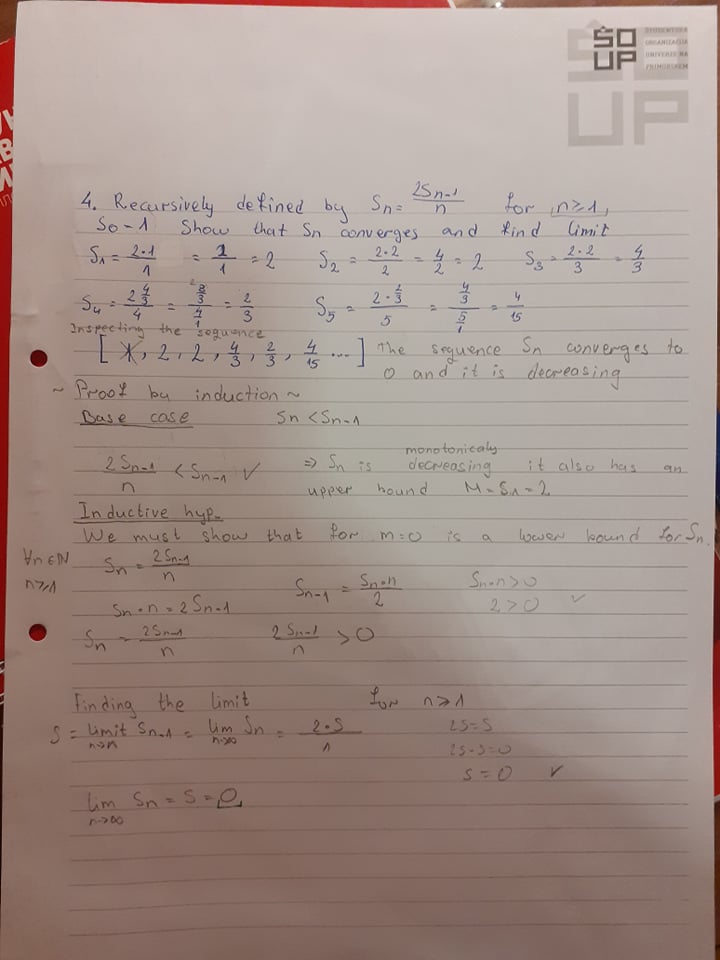 ŠO
UP
ŠTUDENTSKA
ORGANIZACIJA
UNIVERZE NA
PRIMORSKEM
4. Recursively defined by Sn = 2Sn-1/n for n≥1,
S0-1 Show that Sn converges and find limit
S1 = 2·1/1 = 2/1 = 2 S2 = 2·2/2 = 4/2 = 2 S3 = 2·2/3 = 4/3
S4 = 2 4/3 / 4 = 8/3 / 4/1 = 2/3 S5 = 2·2/3 / 5 = 4/3 / 5/1 = 4/15
Inspecting the sequence
[ 1, 2, 2, 4/3, 2/3, 4/15 ... ] The sequence Sn converges to
0 and it is decreasing
~ Proof by induction ~
Base case Sn < Sn-1
2Sn-1/n < Sn-1 ✓ => Sn is monotonicaly decreasing it also has an
upper bound M=S1=2
Inductive hyp.
We must show that for m=0 is a lower bound for Sn.
∀n∈N
n≥1
Sn = 2Sn-1/n
Sn-1 = Sn·n/2 Sn·n>0
Sn·n = 2Sn-1 2>0 ✓
Sn = 2Sn-1/n 2Sn-1/n > 0
Finding the limit for n≥1
S = limit Sn-1 = lim n→∞ Sn = 2·S/1 2S=S
2S-S=0
S=0 ✓
lim n→∞ Sn = S = 0